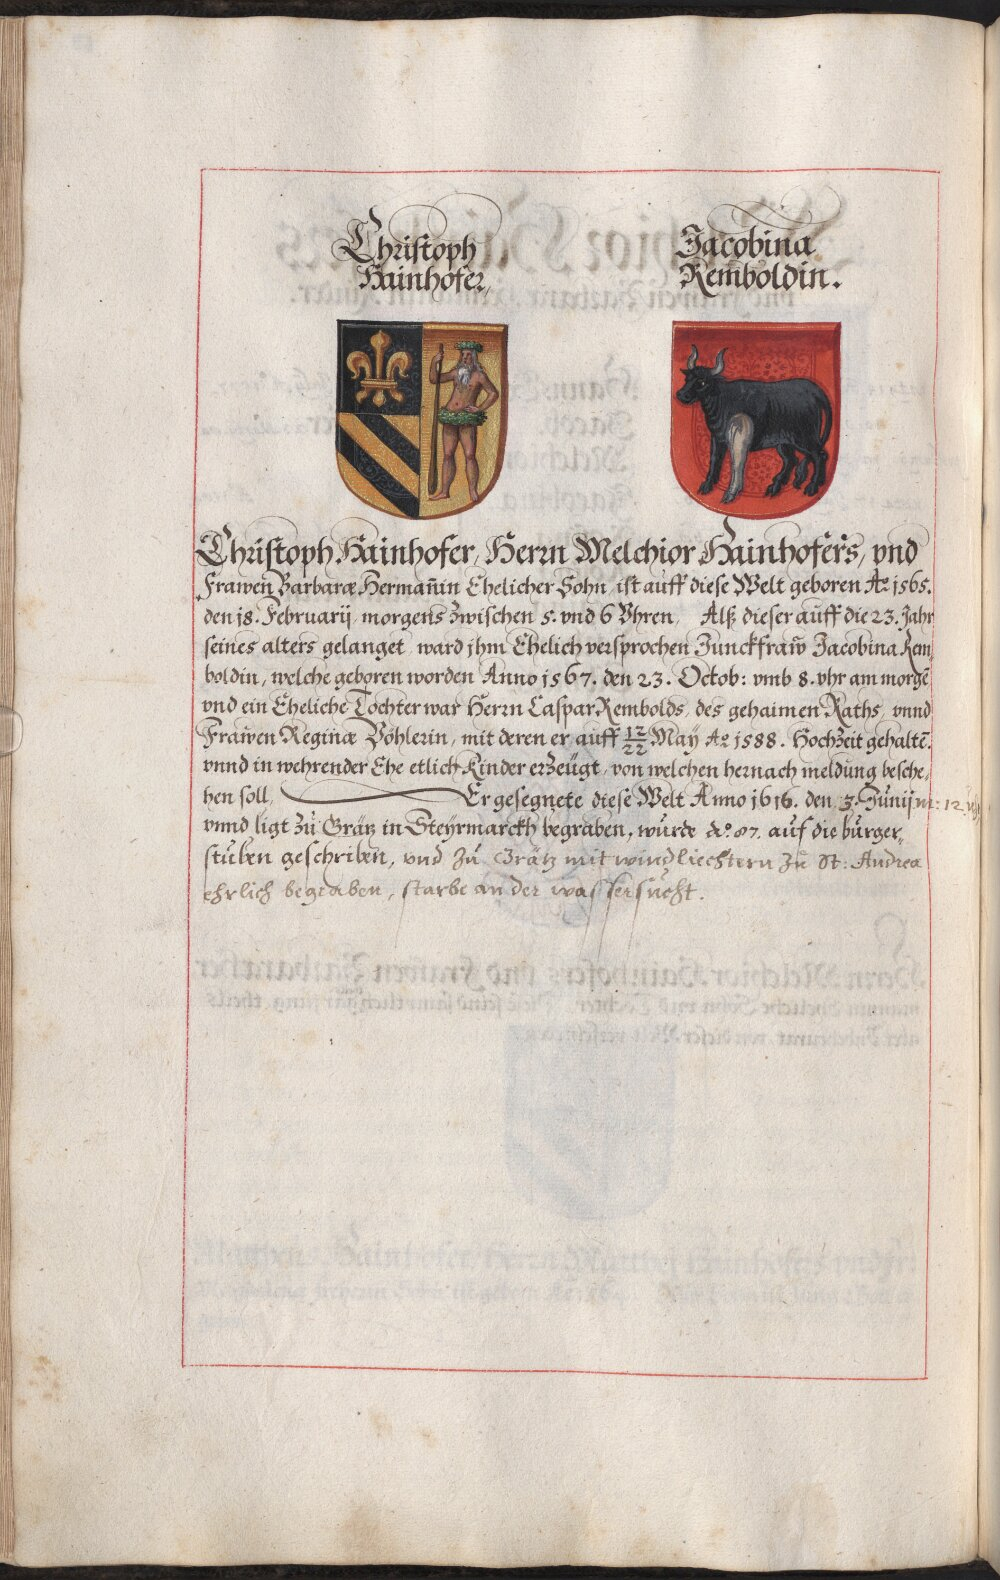 Christoph
Hainhofer,
Jacobina
Remboldin.
Christoph Hainhofer, Herrn Melchior Hainhofers, vnd
Frawen Barbaræ Hermañin Ehelicher Sohn, ist auff diese Welt geboren Aº 1565.
den 18. Februarij morgens zwischen 5. vnd 6 Vhren, Alß dieser auff die 23. Jahr
seines alters gelanget, ward jhm Ehelich versprochen Junckfraw̃ Jacobina Rem„
boldin, welche geboren worden Anno 1567. den 23. Octob: vmb 8. vhr am morgẽ
vnd ein Eheliche Tochter war Herrn Caspar Rembolds, des gehaimen Raths, vnnd
Frawen Reginæ Böhlerin, mit deren er auff 12/22 Maÿ Aº 1588. Hochzeit gehaltẽ.
vnnd in wehrender Ehe etlich Kinder erzeügt, von welchen hernach meldung besche„
hen soll, Er gesegnete diese Welt Anno 1616. den 3. Junij
vnnd ligt zů Grätz in Steÿrmarckh begraben, wurde Aº. 87. auf die burger„
stuben geschriben, vnd zu Grätz mit windliechtern zu St: Andrea
ehrlich begraben, starbe an der wassersucht.